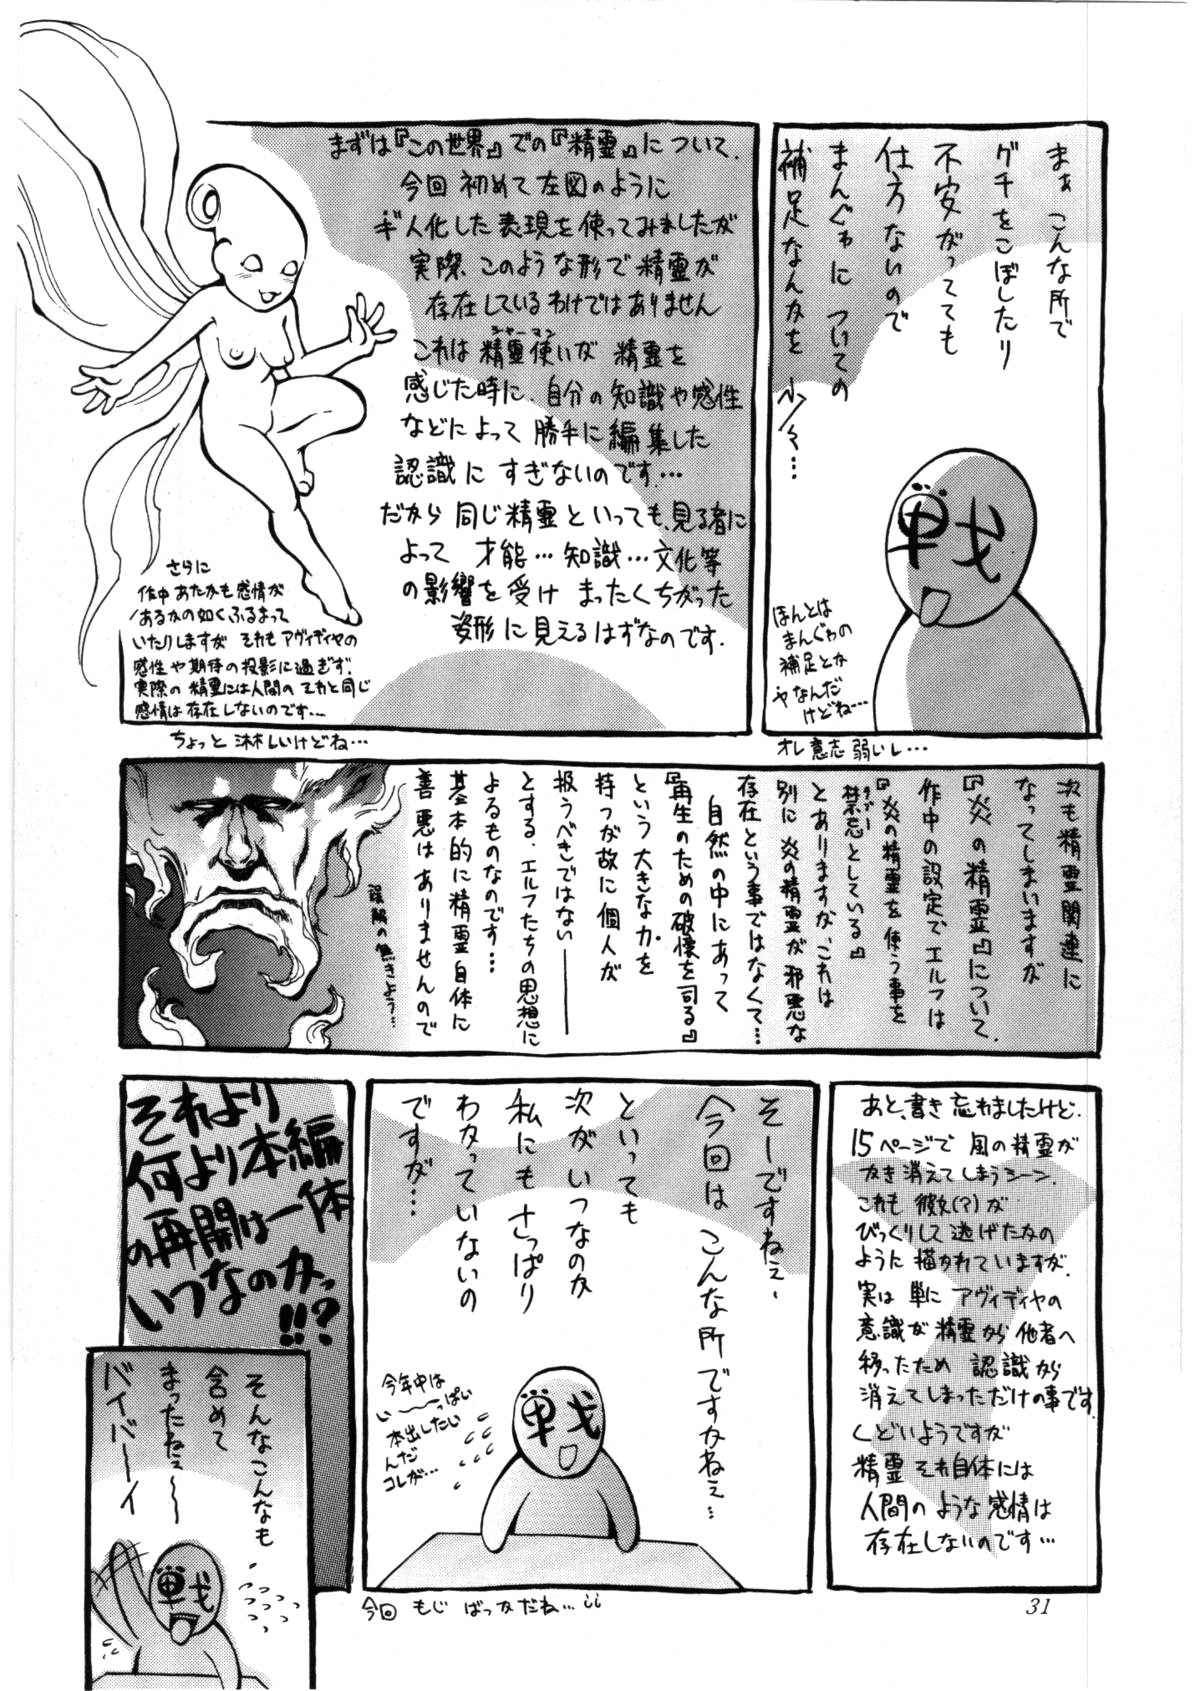 まぁ こんな所で
グチをこぼしたり
不安がってても
仕方ないので
まんぐゎに ついての
補足なんかを 少々…
ほんとは
まんぐゎの
補足とか
やなんだ
けどね…
オレ意志弱いし…
まずは『この世界』での『精霊』について.
今回 初めて左図のように
ギ人化した表現を使ってみましたが
実際、このような形で精霊が
存在しているわけではありません
シャーマン
これは精霊使いが 精霊を
感じた時に、自分の知識や感性
などによって勝手に編集した
認識に すぎないのです…
だから 同じ精霊といっても、見る者に
よって 才能…知識…文化等
の影響を受け まったくちがった
姿形に見えるはずなのです.
さらに
作中 あたかも感情が
あるかの如くふるまって
いたりしますが それも アヴィディヤの
感性や期待の投影に過ぎず.
実際の精霊には人間のそれと同じ
感情は存在しないのです…
ちょっと 淋しいけどね…
次も精霊関連に
なってしまいますが
『炎の精霊』について.
作中の設定でエルフは
『炎の精霊を使う事を
タブー
禁忌としている』
とありますが、これは
別に炎の精霊が邪悪な
存在という事ではなくて…
自然の中にあって
『再生のための破壊を司る』
という大きな力を
持つが故に個人が
扱うべきではない──
とする、エルフたちの思想に
よるものなのです…
基本的に精霊自体に
善悪はありませんので
誤解の無きよう…
あと、書き忘れましたけど.
15ページで 風の精霊が
かき消えてしまうシーン.
これも 彼女(?)が
びっくりして逃げたかの
ように描かれていますが.
実は 単に アヴィディヤの
意識が精霊から他者へ
移ったため 認識から
消えてしまっただけの事です.
くどいようですが
精霊それ自体には
人間のような感情は
存在しないのです…
そーですねぇ、
今回はこんな所ですかねぇ…
といっても
次がいつなのか
私にもさっぱり
わかっていないの
ですが…
今年中は
い〜〜っぱい
本出したい
んだ
コレが…
今回 もじ ばっかだね…
それより
何より本編
の再開は一体
いつなのかっ
!!?
そんなこんなも
含めて
まったねェ〜〜
バイバーイ
31